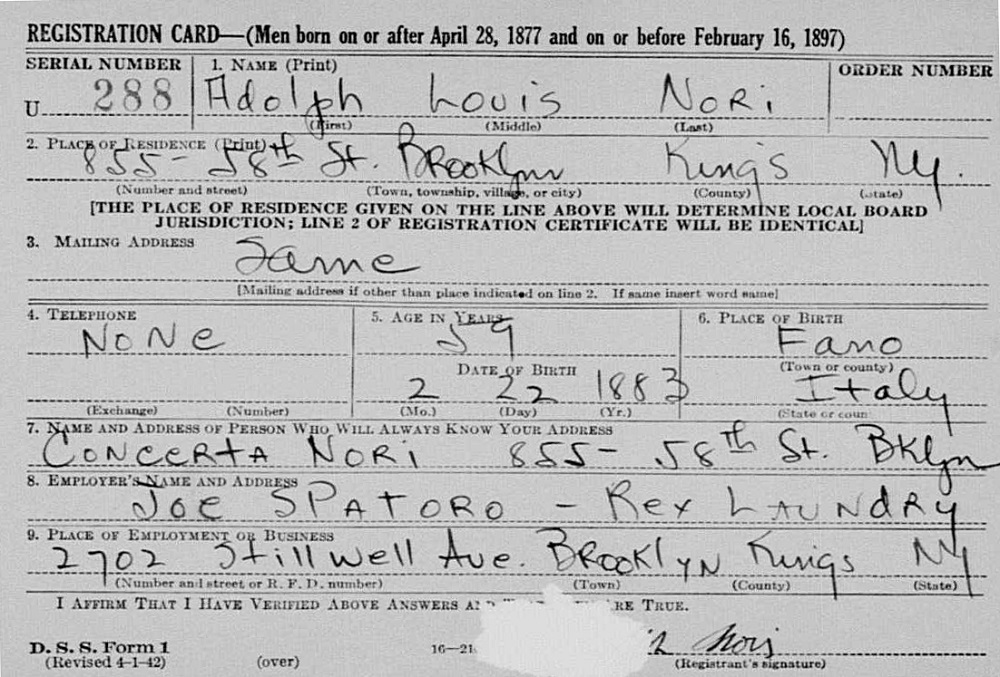 REGISTRATION CARD—(Men born on or after April 28, 1877 and on or before February 16, 1897)
SERIAL NUMBER 1. NAME (Print) ORDER NUMBER
U 288 Adolph Louis Nori
(First) (Middle) (Last)
2. PLACE OF RESIDENCE (Print)
855- 58th St. Brooklyn Kings Ny.
(Number and street) (Town, township, village, or city) (County) (State)
[THE PLACE OF RESIDENCE GIVEN ON THE LINE ABOVE WILL DETERMINE LOCAL BOARD
JURISDICTION; LINE 2 OF REGISTRATION CERTIFICATE WILL BE IDENTICAL]
3. MAILING ADDRESS
Same
[Mailing address if other than place indicated on line 2. If same insert word same]
4. TELEPHONE 5. AGE IN YEARS 6. PLACE OF BIRTH
NoNe 59 Fano
DATE OF BIRTH (Town or county)
2 22 1883 Italy
(Exchange) (Number) (Mo.) (Day) (Yr.) (State or coun
7. NAME AND ADDRESS OF PERSON WHO WILL ALWAYS KNOW YOUR ADDRESS
CONCERTA NORI 855- 58th St. BKlyn
8. EMPLOYER'S NAME AND ADDRESS
JOE SPATORO - Rex LAUNdRY
9. PLACE OF EMPLOYMENT OR BUSINESS
2702 Stillwell Ave. BROOKlYN Kings NY
(Number and street or R. F. D. number) (Town) (County) (State)
I AFFIRM THAT I HAVE VERIFIED ABOVE ANSWERS RE TRUE.
D. S. S. Form 1 16—21 Nori
(Revised 4-1-42) (over) (Registrant's signature)